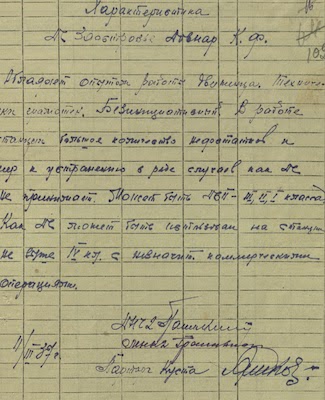 Характеристика
ДС Заостровье К. Ф.
193
Обладает опытом работы движенца. Техниче-
ски грамотен. Безинициативный. В работе
станции большое количество недостатков и
мер к устранению в ряде случаев как ДС
не принимает. Может быть ДСП - III, II, I класса.
Как ДС может быть использован на станции
не выше IV кл. с незначит. коммерческими
операциями.
ДНЧ2
11/III 37 г.
Парторг Куста